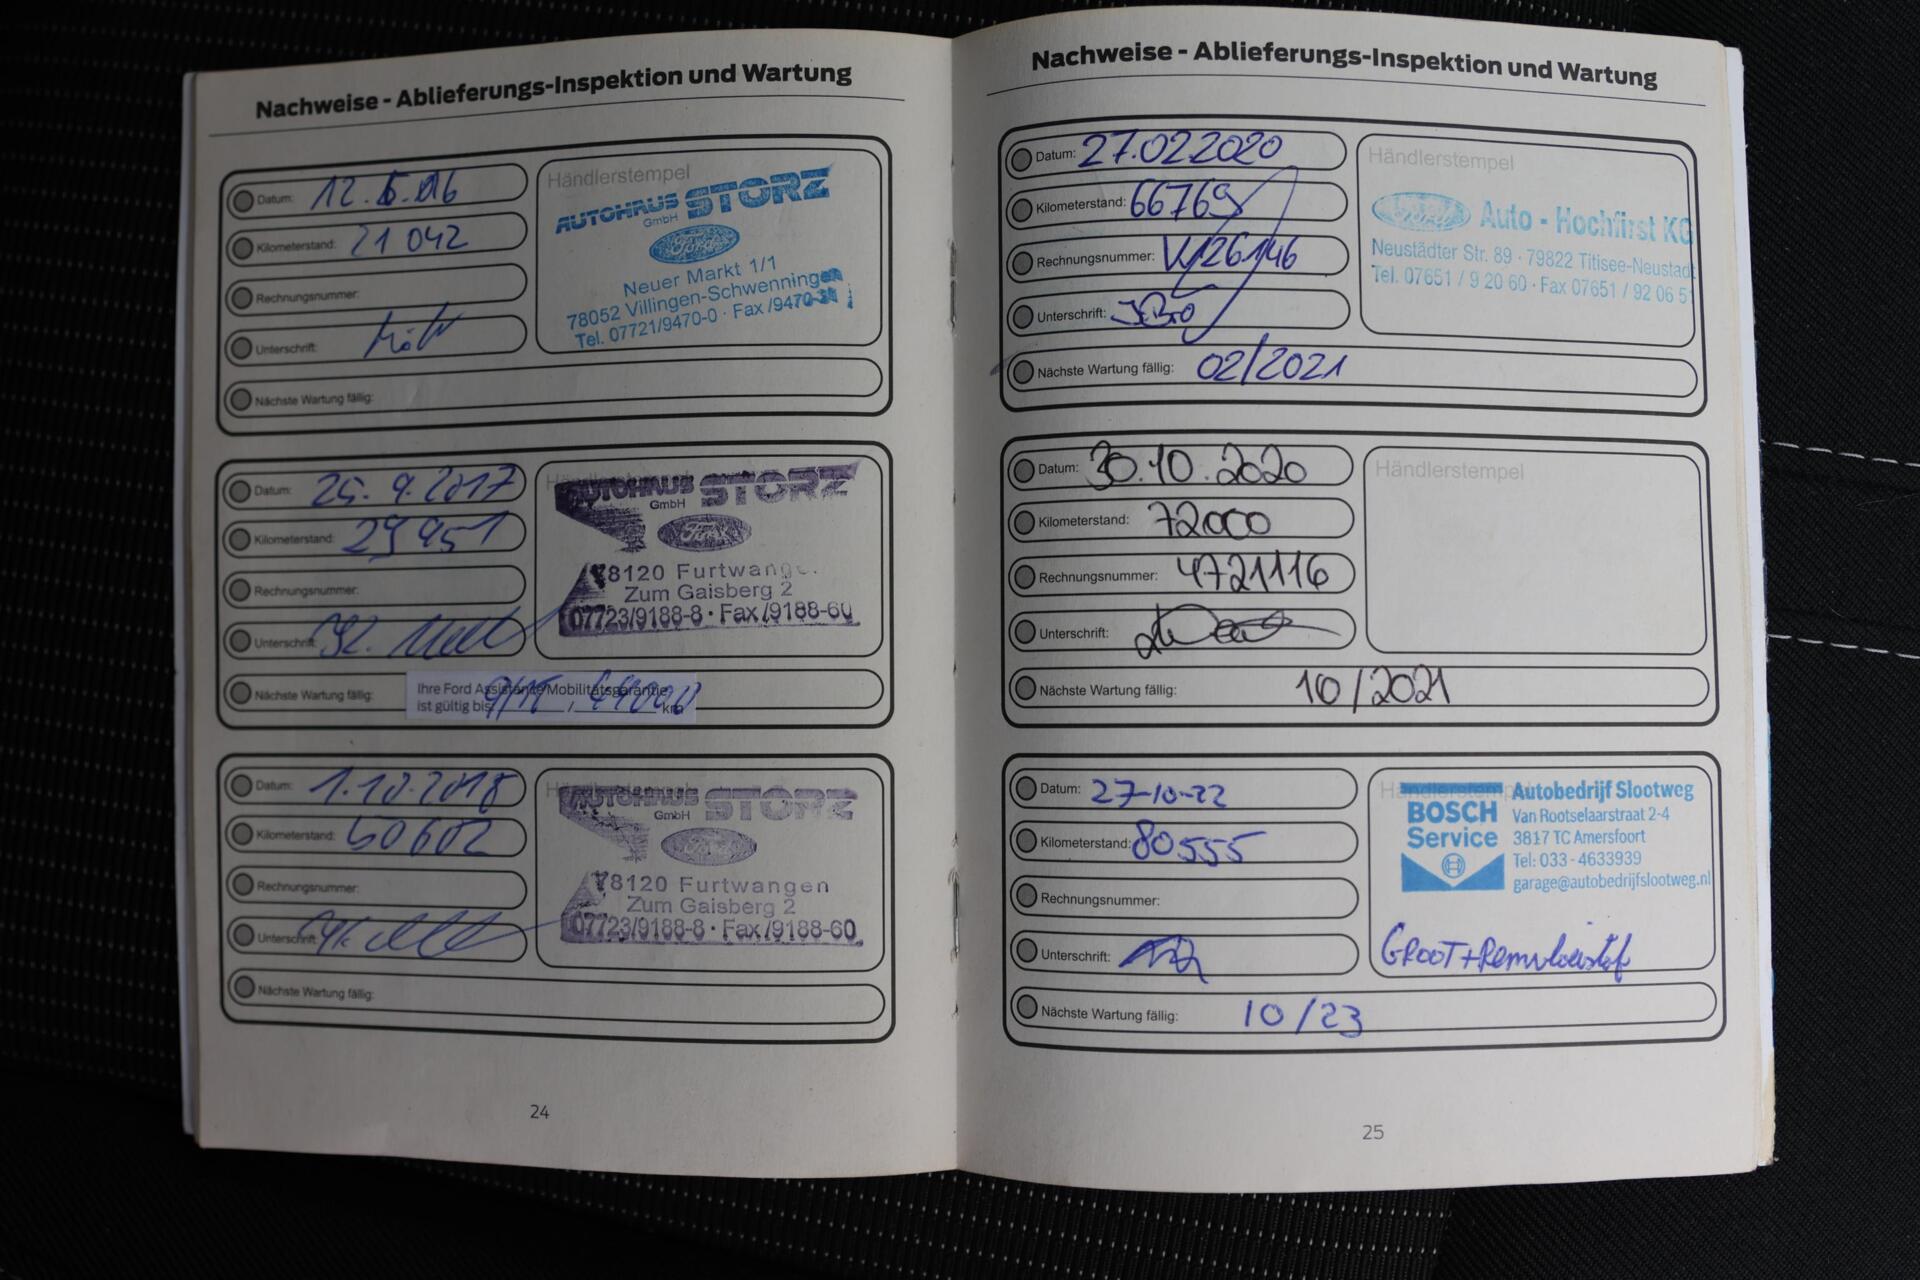 Nachweise - Ablieferungs-Inspektion und Wartung
Datum: 12.
Kilometerstand: 21 042
Rechnungsnummer:
Unterschrift:
Nächste Wartung fällig:
Händlerstempel
AUTOHAUS STORZ
GmbH
Ford
Neuer Markt 1/1
78052 Villingen-Schwenningen
Tel. 07721/9470-0 · Fax /9470-
Datum: 25. 9. 2017
Kilometerstand: 29 951
Rechnungsnummer:
Unterschrift:
Nächste Wartung fällig:
Ihre Ford Assistance Mobilitätsgarantie
ist gültig bis / km
AUTOHAUS STORZ
GmbH
Ford
78120 Furtwangen
Zum Gaisberg 2
07723/9188-8 · Fax /9188-60
Datum: 1.10.2018
Kilometerstand: 50 602
Rechnungsnummer:
Unterschrift:
Nächste Wartung fällig:
AUTOHAUS STORZ
GmbH
Ford
78120 Furtwangen
Zum Gaisberg 2
07723/9188-8 · Fax /9188-60
24
Nachweise - Ablieferungs-Inspektion und Wartung
Datum: 27.02.2020
Kilometerstand: 66769
Rechnungsnummer:
Unterschrift:
Nächste Wartung fällig: 02/2021
Händlerstempel
Ford Auto - Hochfirst KG
Neustädter Str. 89 · 79822 Titisee-Neustadt
Tel. 07651 / 9 20 60 · Fax 07651 / 92 06 51
Datum: 30.10.2020
Kilometerstand: 72000
Rechnungsnummer: 4721116
Unterschrift:
Nächste Wartung fällig: 10/2021
Händlerstempel
Datum: 27-10-22
Kilometerstand: 80555
Rechnungsnummer:
Unterschrift:
Nächste Wartung fällig: 10/23
Händlerstempel
BOSCH
Service
Autobedrijf Slootweg
Van Rootselaarstraat 2-4
3817 TC Amersfoort
Tel: 033 - 4633939
garage@autobedrijfslootweg.nl
GROOT + Remvloeistof
25